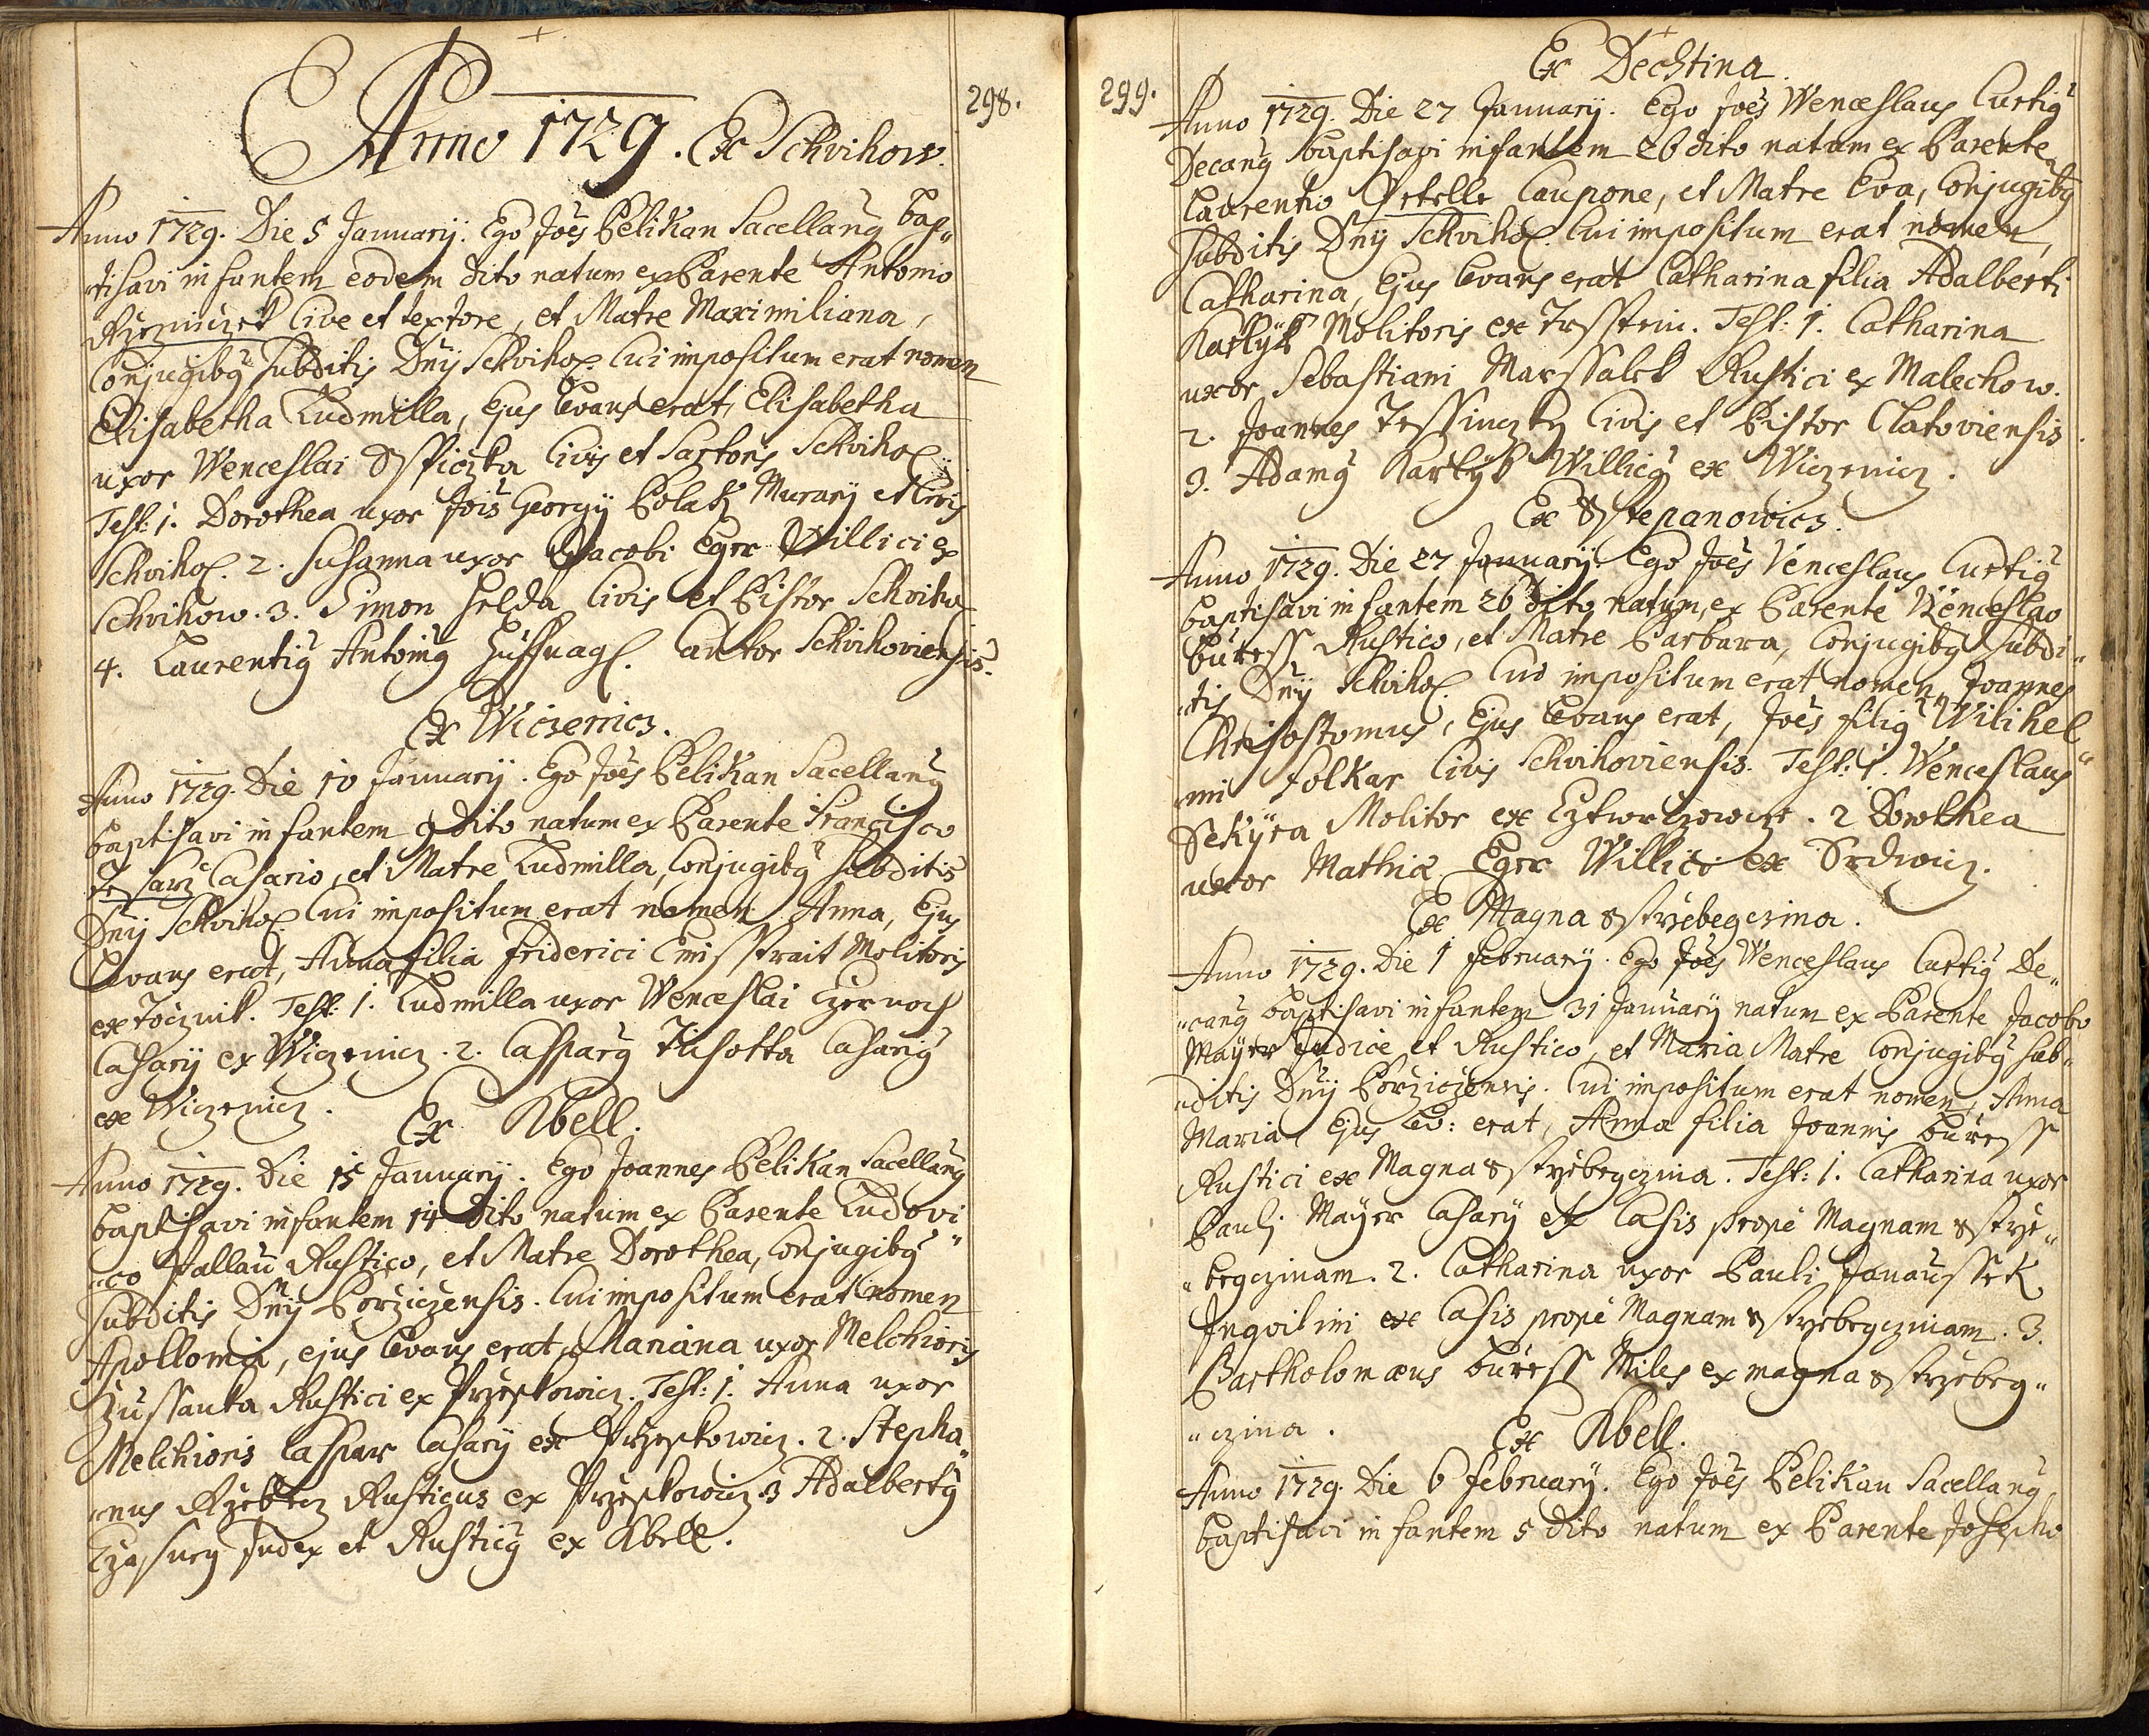 298.
Anno 1729. Ex Schvihow.
Anno 1729. Die 5 Januarij. Ego Joēs Pelikan Sacellanus bap„
tisavi infantem eodem dito natum ex Parente Antonio
Cive et textore, et Matre Maximiliana,
Conjugibus subditis Dnÿ Schviho. Cui impositum erat nomen
Elisabetha Ludmilla, Ejus Levans erat, Elisabetha
uxor Wenceslai Civis et Sartoris Schviho.
Test: 1. Dorothea uxor Jois Georgij Polak Murarij et Civis
Schviho. 2. Susanna uxor Jacobi Eger Willici ex
Schvihow. 3. Simon Helda Civis et Pistor Schviho
4. Laurentius Antonius Cantor Schvihoviensis.
Ex Wiczenicz.
Anno 1729. Die 10 Januarij. Ego Joēs Pelikan Sacellanus
baptisavi infantem 9 dito natum ex Parente Francisco
Casario, et Matre Ludmilla, Conjugibus subditis
Dnÿ Schviho. Cui impositum erat nomen Anna, Ejus
Levans erat, Anna filia Friderici Molitoris
ex Tocznik. Test: 1. Ludmilla uxor Wenceslai Czernoch
Casarij ex Wiczenicz. 2. Casparus Casarius
ex Wiczenicz.
Ex Kbell.
Anno 1729. Die 15 Januarij. Ego Joannes Pelikan Sacellanus
baptisavi infantem 14 dito natum ex Parente Ludovi„
„co Pallau Rustico, et Matre Dorothea, Conjugibus
subditis Dnÿ Porziczensis. Cui impositum erat nomen
Apollonia, ejus Levans erat, Mariana uxor Melchioris
Rustici ex Przeskowicz. Test: 1. Anna uxor
Melchioris Caspar Casarij ex Przeskowicz. 2. Stepha„
„nus Rusticus ex Przeskowicz. 3 Adalbertus
Judex et Rusticus ex Kbell.
299.
Ex Dechtina.
Anno 1729. Die 27 Januarij. Ego Joēs Wenceslaus Curtius
Decanus baptisavi infantem 26 dito natum ex Parente
Laurentio Caupone, et Matre Eva, Conjugibus
subditis Dnÿ Schviho. Cui impositum erat nomen,
Catharina, Ejus Levans erat Catharina filia Adalberti
Molitoris ex Test: 1. Catharina
uxor Sebastiani Marssalek Rustici ex Malechow.
2. Joannes Civis et Pistor Clatoviensis.
3. Adamus Willicus ex Wiczenicz.
Ex Stepanowicz.
Anno 1729. Die 27 Januarij. Ego Joēs Venceslaus Curtius
baptisavi infantem 26 dito natum, ex Parente Venceslao
Buress Rustico, et Matre Barbara, Conjugibus subdi„
„tis Dnÿ Schviho. Cui impositum erat nomen, Joannes
Chrisostomus, Ejus Levans erat, Joēs filius Wilihel„
„mi Folkar Civis Schvihoviensis. Test: 1. Wenceslaus
Sekÿra Molitor ex 2 Dorothea
uxor Mathiæ Eger Willici ex
Ex Magna Strzebeczina.
Anno 1729. Die 1 February. Ego Joēs Wenceslaus Curtius De„
„canus baptisavi infantem 31 Januarij natum ex Parente Jacobo
Maÿer Judice et Rustico, et Maria Matre Conjugibus sub„
„ditis Dnÿ Porziczensis. Cui impositum erat nomen, Anna
Maria, Ejus Lev: erat, Anna filia Joannis Buress
Rustici ex Magna Strzebeczina. Test: 1. Catharina uxor
Pauli Maÿer Casarij ex Casis propè Magnam Strze„
„beczinam. 2. Catharina uxor Pauli Janaussek
Inquilini ex Casis propè Magnam Strzebeczinam. 3.
Bartholomæus Buress Miles ex magna Strzebe„
„czina.
Ex Kbell.
Anno 1729. Die 6 February. Ego Joēs Pelikan Sacellanus
baptisavi infantem 5 dito natum ex Parente Josepho